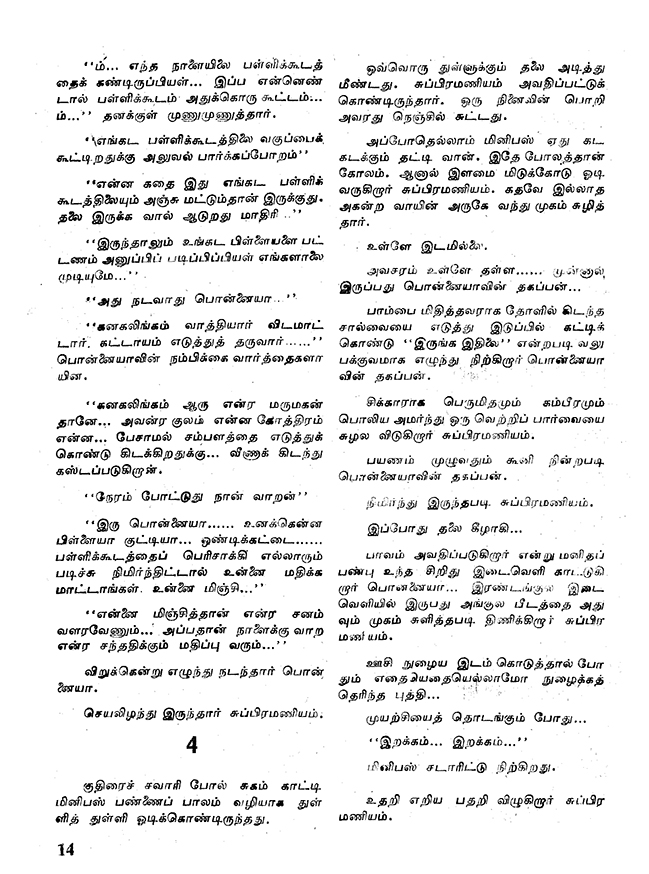 “ம்... எந்த நாளையிலை பள்ளிக்கூடத்
தைக் கண்டிருப்பியள்... இப்ப என்னெண்
டால் பள்ளிக்கூடம் அதுக்கொரு கூட்டம்...
ம்...” தனக்குள் முணுமுணுத்தார்.
“எங்கட பள்ளிக்கூடத்திலை வகுப்பைக்
கூட்டிறதுக்கு அலுவல் பார்க்கப்போறம்”
“என்ன கதை இது எங்கட பள்ளிக்
கூடத்திலையும் அஞ்சு மட்டும்தான் இருக்குது.
தலை இருக்க வால் ஆடுறது மாதிரி ..”
“இருந்தாலும் உங்கட பிள்ளையளை பட்
டணம் அனுப்பிப் படிப்பிப்பியள் எங்களாலை
முடியுமே...”
“அது நடவாது பொன்னையா...”
“கனகலிங்கம் வாத்தியார் விடமாட்
டார். கட்டாயம் எடுத்துத் தருவார்......”
பொன்னையாவின் நம்பிக்கை வார்த்தைகளா
யின.
“கனகலிங்கம் ஆரு என்ர மருமகன்
தானே... அவன்ர குலம் என்ன கோத்திரம்
என்ன... பேசாமல் சம்பளத்தை எடுத்துக்
கொண்டு கிடக்கிறதுக்கு... வீணாக் கிடந்து
கஸ்டப்படுகிறான்.
“நேரம் போட்டுது நான் வாறன்”
“இரு பொன்னையா...... உனக்கென்ன
பிள்ளையா குட்டியா... ஒண்டிக்கட்டை......
பள்ளிக்கூடத்தைப் பெரிசாக்கி எல்லாரும்
படிச்சு நிமிர்ந்திட்டால் உன்னை மதிக்க
மாட்டாங்கள். உன்னை மிஞ்சி...”
“என்னை மிஞ்சித்தான் என்ர சனம்
வளரவேணும்... அப்பதான் நாளைக்கு வாற
என்ர சந்ததிக்கும் மதிப்பு வரும்...”
விறுக்கென்று எழுந்து நடந்தார் பொன்
னையா.
செயலிழந்து இருந்தார் சுப்பிரமணியம்.
4
குதிரைச் சவாரி போல் சுகம் காட்டி
மினிபஸ் பண்ணைப் பாலம் வழியாக துள்
ளித் துள்ளி ஓடிக்கொண்டிருந்தது.
ஒவ்வொரு துள்ளுக்கும் தலை அடித்து
மீண்டது. சுப்பிரமணியம் அவதிப்பட்டுக்
கொண்டிருந்தார். ஒரு நினைவின் பொறி
அவரது நெஞ்சில் சுட்டது.
அப்போதெல்லாம் மினிபஸ் ஏது கட
கடக்கும் தட்டி வான். இதே போலத்தான்
கோலம். ஆனால் இளமை மிடுக்கோடு ஓடி
வருகிறார் சுப்பிரமணியம். கதவே இல்லாத
அகன்ற வாயின் அருகே வந்து முகம் சுழித்
தார்.
உள்ளே இடமில்லை.
அவசரம் உள்ளே தள்ள...... முன்னால்
இருப்பது பொன்னையாவின் தகப்பன்...
பாம்பை மிதித்தவராக தோளில் கிடந்த
சால்வையை எடுத்து இடுப்பில் கட்டிக்
கொண்டு “இருங்க இதிலை” என்றபடி வலு
பக்குவமாக எழுந்து நிற்கிறார் பொன்னையா
வின் தகப்பன்.
சிக்காராக பெருமிதமும் கம்பீரமும்
பொலிய அமர்ந்து ஒரு வெற்றிப் பார்வையை
சுழல விடுகிறார் சுப்பிரமணியம்.
பயணம் முழுவதும் கூனி நின்றபடி
பொன்னையாவின் தகப்பன்.
நிமிர்ந்து இருந்தபடி சுப்பிரமணியம்.
இப்போது தலை கீழாகி...
பாவம் அவதிப்படுகிறார் என்று மனிதப்
பண்பு உந்த சிறிது இடைவெளி காட்டுகி
றார் பொன்னையா... இரண்டங்குல இடை
வெளியில் இருபது அங்குல பீடத்தை அது
வும் முகம் சுளித்தபடி திணிக்கிறார் சுப்பிர
மணியம்.
ஊசி நுழைய இடம் கொடுத்தால் போ
தும் எதையெதையெல்லாமோ நுழைக்கத்
தெரிந்த புத்தி...
முயற்சியைத் தொடங்கும் போது...
“இறக்கம்... இறக்கம்...”
மினிபஸ் சடாரிட்டு நிற்கிறது.
உதறி எறிய பதறி விழுகிறார் சுப்பிர
மணியம்.
14